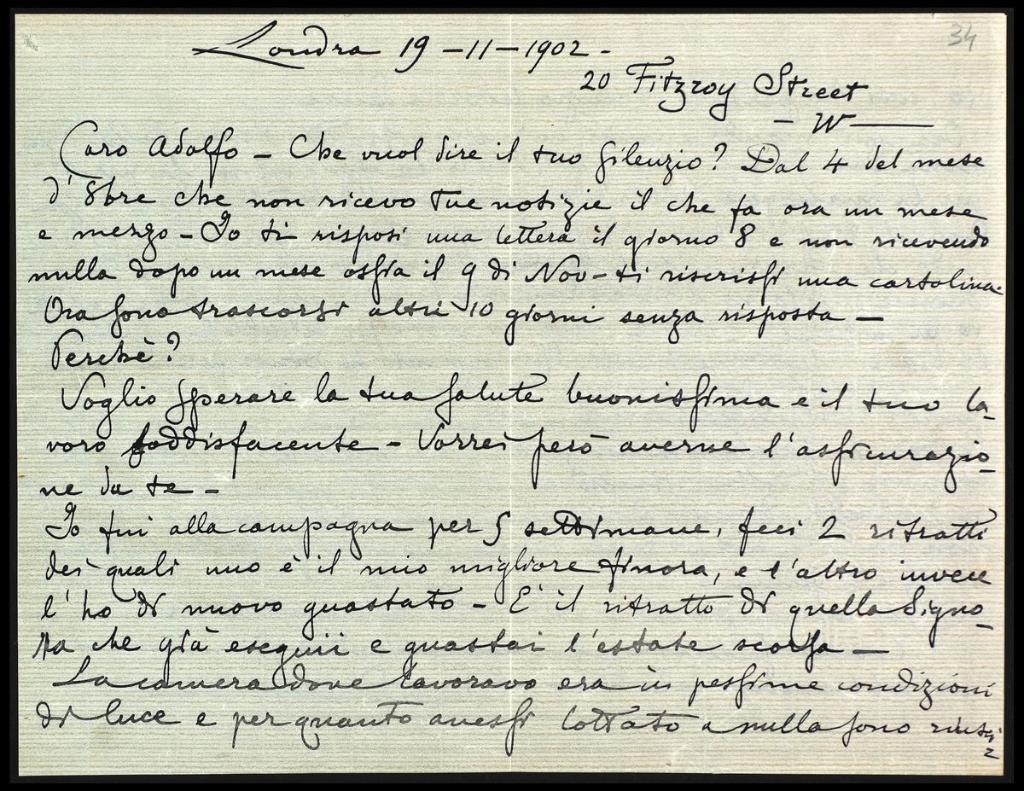 34
Londra 19-11-1902-
20 Fitzroy Street
- W
Caro Adolfo - Che vuol dire il tuo silenzio? Dal 4 del mese
d'8bre che non ricevo tue notizie il che fa ora un mese
e mezzo - Io ti risposi una lettera il giorno 8 e non ricevendo
nulla dopo un mese ossia il 9 di Nov- ti riscrissi una cartolina.
Ora sono trascorsi altri 10 giorni senza risposta -
Perchè?
Voglio sperare la tua salute buonissima e il tuo la-
voro soddisfacente - Vorrei però averne l'assicurazio-
ne da te -
Io fui alla campagna per 5 settimane, feci 2 ritratti
dei quali uno è il mio migliore finora, e l'altro invece
l'ho di nuovo guastato - E' il ritratto di quella Signo-
ra che già eseguii e guastai l'estate scorsa -
La camera dove lavoravo era in pessime condizioni
di luce e per quanto avessi lottato a nulla sono riusci